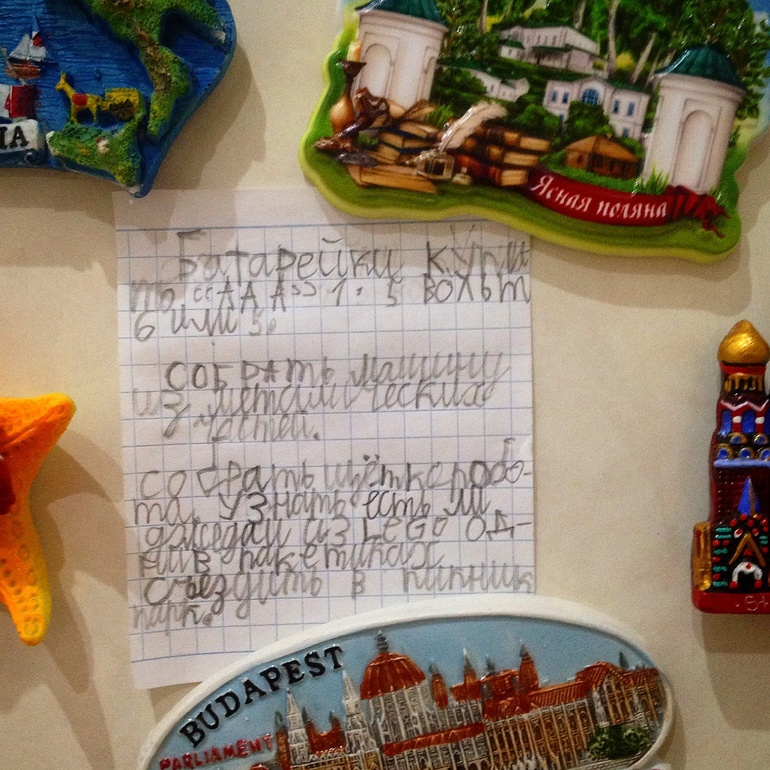 IA
Ясная поляна
Батарейки купи
ть "ААА" 1.5 вольт
6 или 5.
собрать машину
из металических
частей.
собрать щёткоробо-
та. Узнать есть ли
джедаи из LEGO од-
ни в пакетиках
съездить в пикник
парк.
BUDAPEST
PARLIAMENT